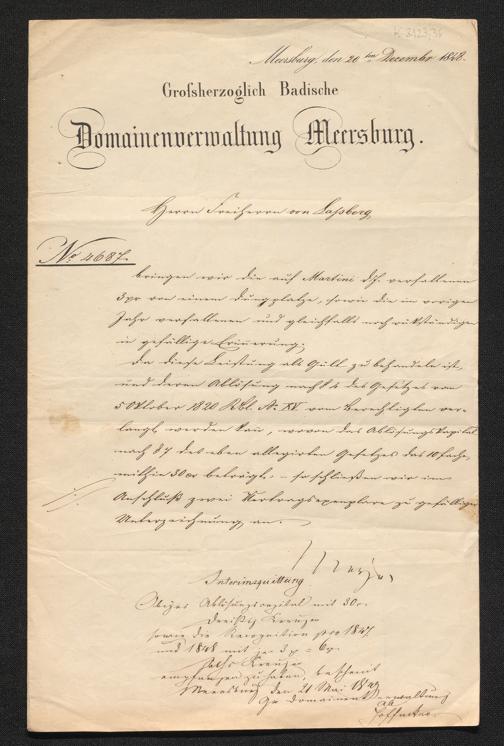 Meersburg, den 20ten December 1848.
Großherzoglich Badische
Domainenverwaltung Meersburg.
Herrn Freiherrn von Laßberg
No 4687.
bringen wir die auf Martini d.J. verfallenen
3 xr von einem Dungplatze, sowie die im vorigen
Jahr verfallenen und gleichfalls noch rükständigen
in gefällige Erinnerung.
Da diese Leistung als Gült zu behandeln ist,
und deren Ablösung nach § des Gesetzes vom
5 Oktober 1820 Rbl. No XV vom Berechtigten ver-
langt werden kan, wovon das Ablösungskapital
nach § 7 des eben allegirten Gesetzes das 10fache
mithin 30 xr beträgt, so schließen wir im
Anschluß zwei Vertragsexemplare zu gefälliger
Unterzeichnung an.
Interimsquittung
Obiges Ablösungscapital mit 30 xr
Dreißig Kreuzer
sowie die Recognition pro 1847
und 1848 mit je 3 xr = 6 xr
sechs Kreuzer
empfangen zu haben, bescheint
Meersburg den 21 Mai 1849
Gr Domainenverwaltung